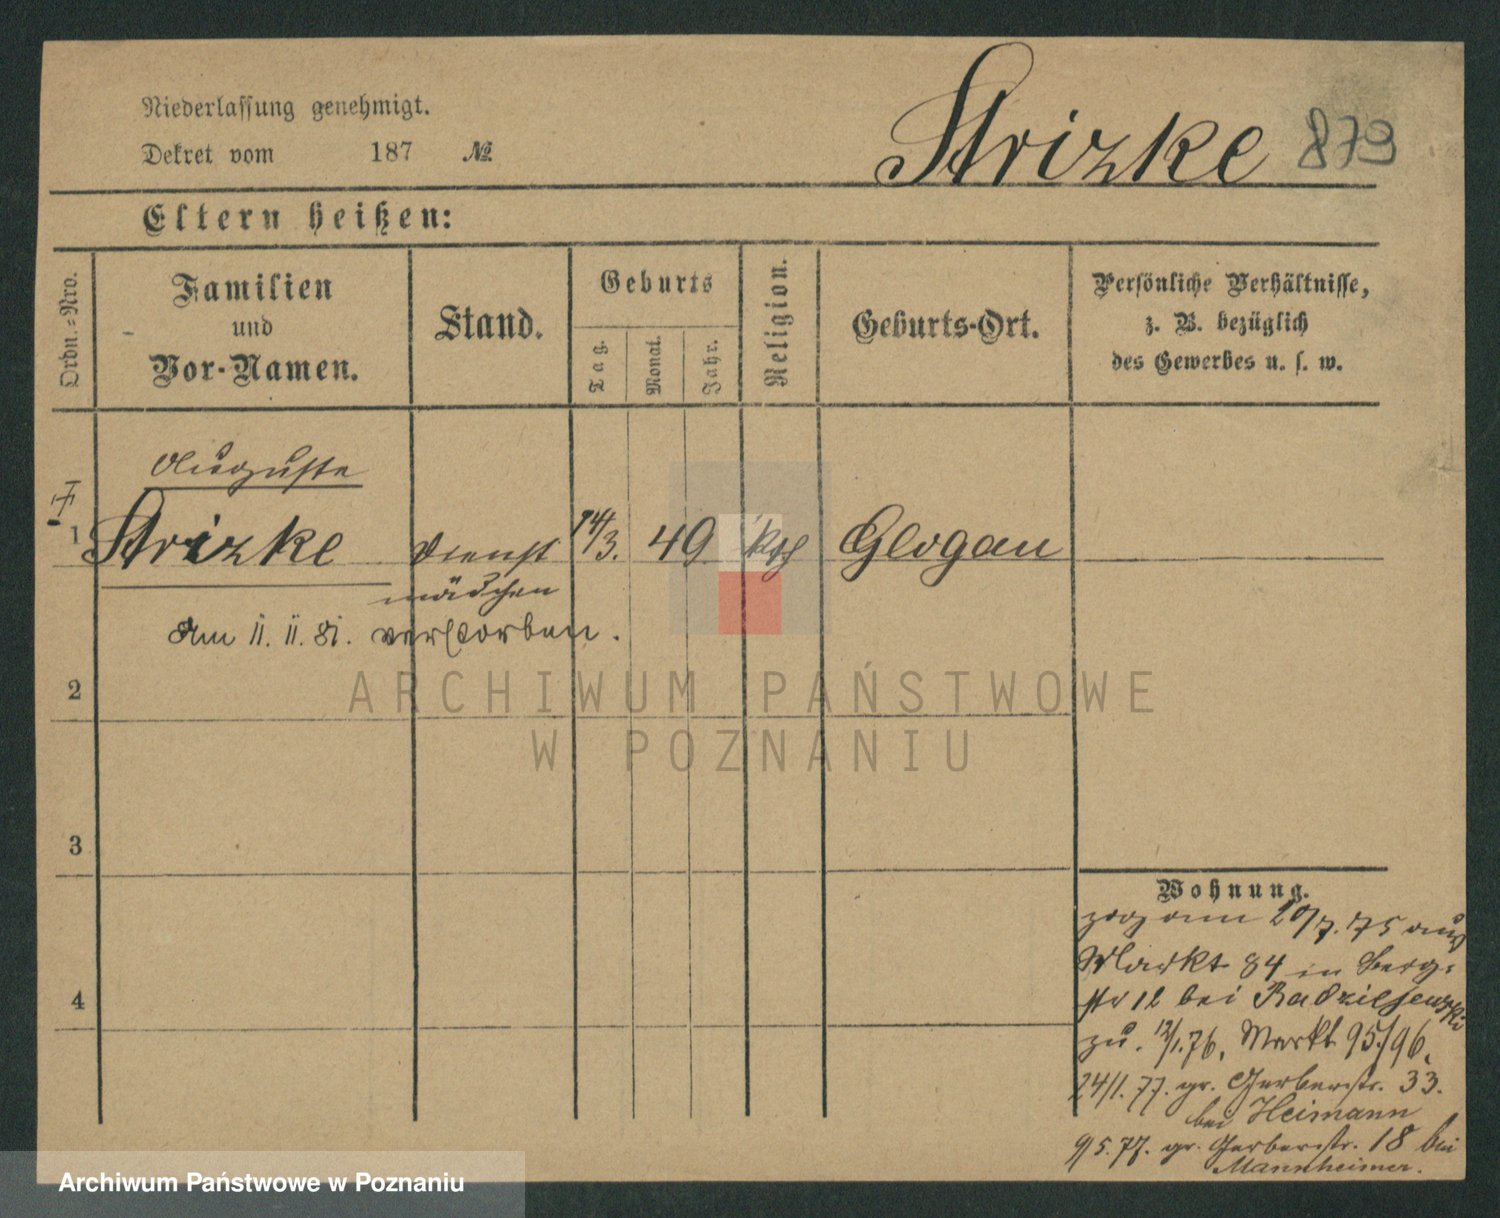 Niederlassung genehmigt.
Dekret vom 187 №
Strizke 879
Eltern heißen:
Ordn.=Nro.
Familien
und
Vor-Namen.
Stand.
Geburts
Tag.
Monat.
Jahr.
Religion.
Geburts-Ort.
Persönliche Verhältnisse,
z. B. bezüglich
des Gewerbes u. s. w.
Auguste
1 Strizke Dienst 14/3. 49 Glogau
mädchen
Am 11. 11. 81. verstorben.
2
3
4
Wohnung.
zog am 20/7. 75 aus
Markt 84 in Berg-
str 12 bei Radziejewski
zu. 12/1. 76. Markt 95/96.
24/1. 77. gr. Gerberstr. 33.
bei Heimann
9/5. 77. gr. Gerberstr. 18 bei
Mannheimer.
ARCHIWUM PAŃSTWOWE
W POZNANIU
Archiwum Państwowe w Poznaniu